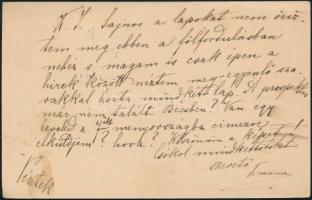 K. J. Sajnos a lapokat nem őriz-
tem meg ebben a fölfordulásban
nehéz s magam is csak épen a
hirek között néztem meg - egyenlő sza-
vakkal hozta mindkét lap. A prospektus
már nem talált Bécsben? Van egy
leveled a menyországba cimezve
elküldjem? hova? Köszönöm a képet!
Csókol mindkettőtöket
szerető
Péntek